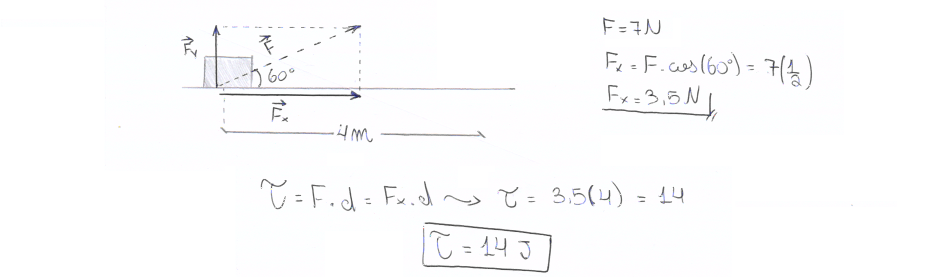 F⃗y
F⃗
60°
F⃗x
4m
F = 7N
Fx = F. cos(60°) = 7(1/2)
Fx = 3,5 N
τ = F.d = Fx.d ⇝ τ = 3,5(4) = 14
τ = 14 J